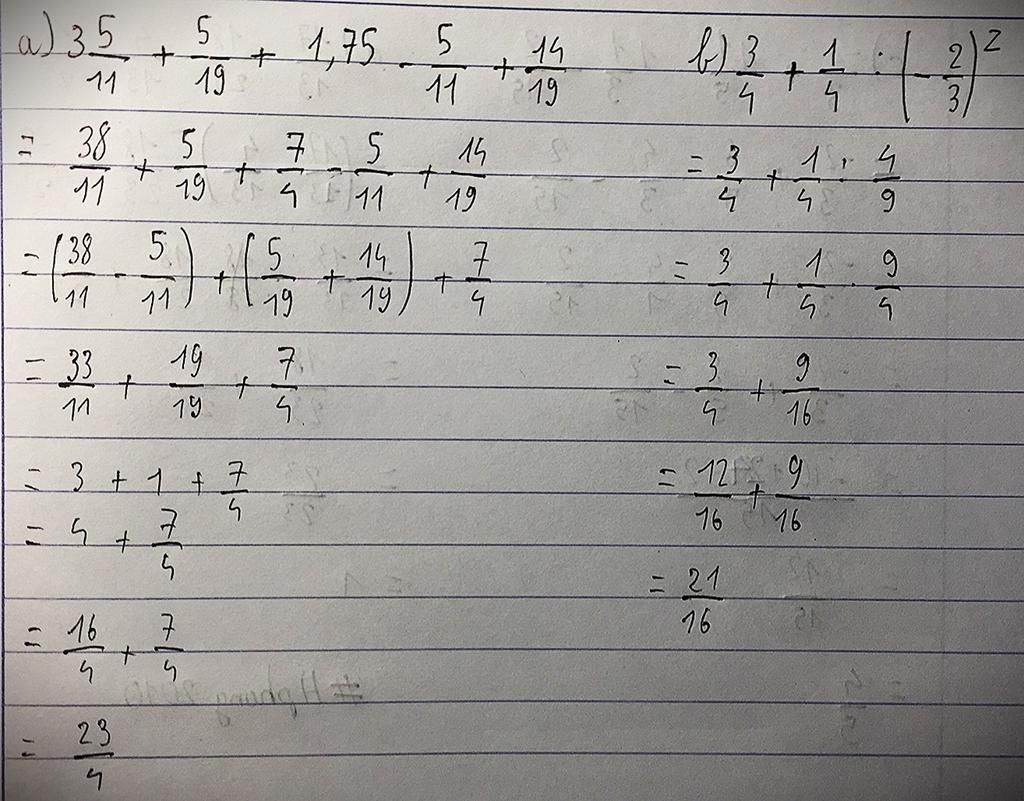 a) 3 5/11 + 5/19 + 1,75 - 5/11 + 14/19
= 38/11 + 5/19 + 7/4 - 5/11 + 14/19
= (38/11 - 5/11) + (5/19 + 14/19) + 7/4
= 33/11 + 19/19 + 7/4
= 3 + 1 + 7/4
= 4 + 7/4
= 16/4 + 7/4
= 23/4
b) 3/4 + 1/4 : (- 2/3)^2
= 3/4 + 1/4 : 4/9
= 3/4 + 1/4 . 9/4
= 3/4 + 9/16
= 12/16 + 9/16
= 21/16